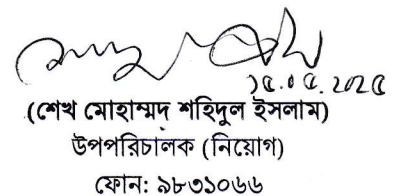 ১৫.০৫.২০২৫
(শেখ মোহাম্মদ শহিদুল ইসলাম)
উপপরিচালক (নিয়োগ)
ফোন: ৯৮৩১০৬৬